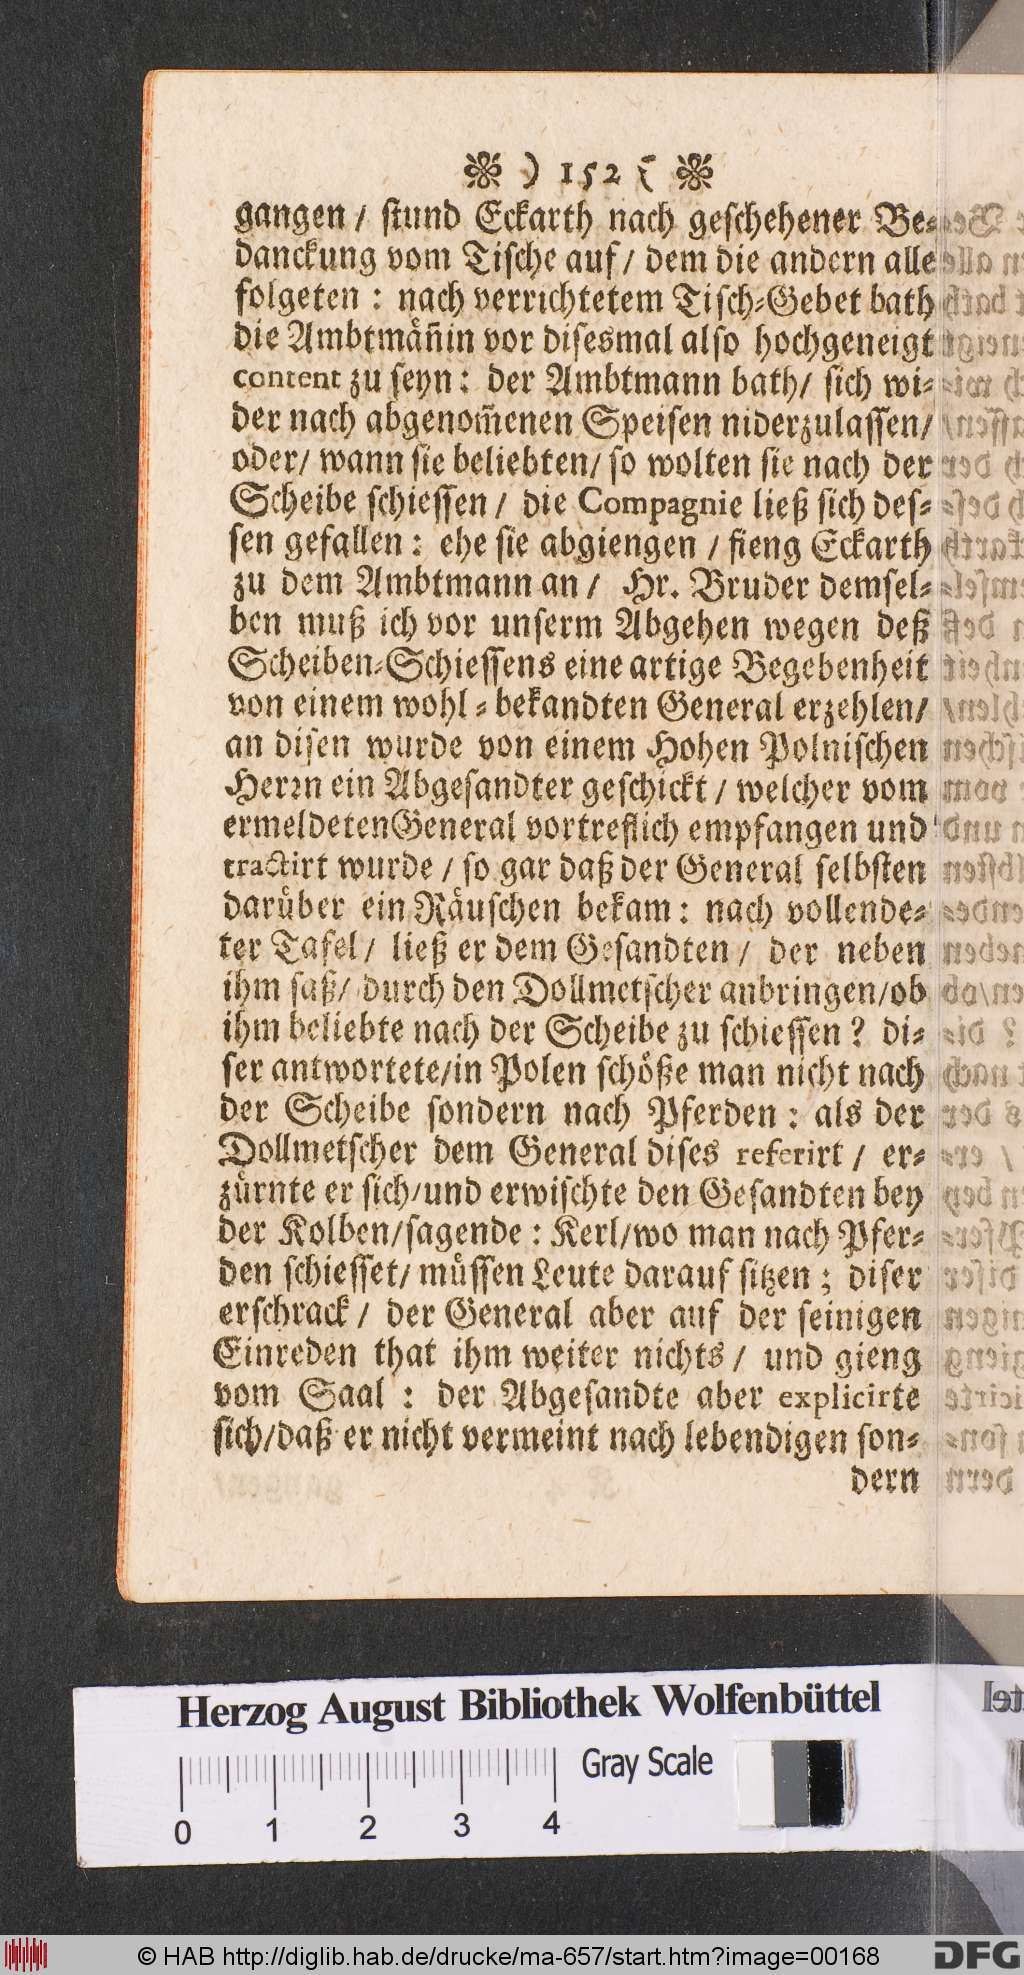 ❀ ) 152 ( ❀
gangen / stund Eckarth nach geschehener Be-
danckung vom Tische auf / dem die andern alle
folgeten : nach verrichtetem Tisch-Gebet bath
die Ambtmän̄in vor disesmal also hochgeneigt
content zu seyn : der Ambtmann bath / sich wi-
der nach abgenom̄enen Speisen niderzulassen /
oder / wann sie beliebten / so wolten sie nach der
Scheibe schiessen / die Compagnie ließ sich des-
sen gefallen : ehe sie abgiengen / fieng Eckarth
zu dem Ambtmann an / Hr. Bruder demsel-
ben muß ich vor unserm Abgehen wegen deß
Scheiben-Schiessens eine artige Begebenheit
von einem wohl-bekandten General erzehlen /
an disen wurde von einem Hohen Polnischen
Herrn ein Abgesandter geschickt / welcher vom
ermeldeten General vortreflich empfangen und
tractirt wurde / so gar daß der General selbsten
darüber ein Räuschen bekam : nach vollende-
ter Tafel / ließ er dem Gesandten / der neben
ihm saß / durch den Dollmetscher anbringen / ob
ihm beliebte nach der Scheibe zu schiessen ? di-
ser antwortete / in Polen schöße man nicht nach
der Scheibe sondern nach Pferden : als der
Dollmetscher dem General dises referirt / er-
zürnte er sich / und erwischte den Gesandten bey
der Kolben / sagende : Kerl / wo man nach Pfer-
den schiesset / müssen Leute darauf sitzen ; diser
erschrack / der General aber auf der seinigen
Einreden that ihm weiter nichts / und gieng
vom Saal : der Abgesandte aber explicirte
sich / daß er nicht vermeint nach lebendigen son-
dern
Herzog August Bibliothek Wolfenbüttel
Gray Scale
0 1 2 3 4
© HAB http://diglib.hab.de/drucke/ma-657/start.htm?image=00168
DFG